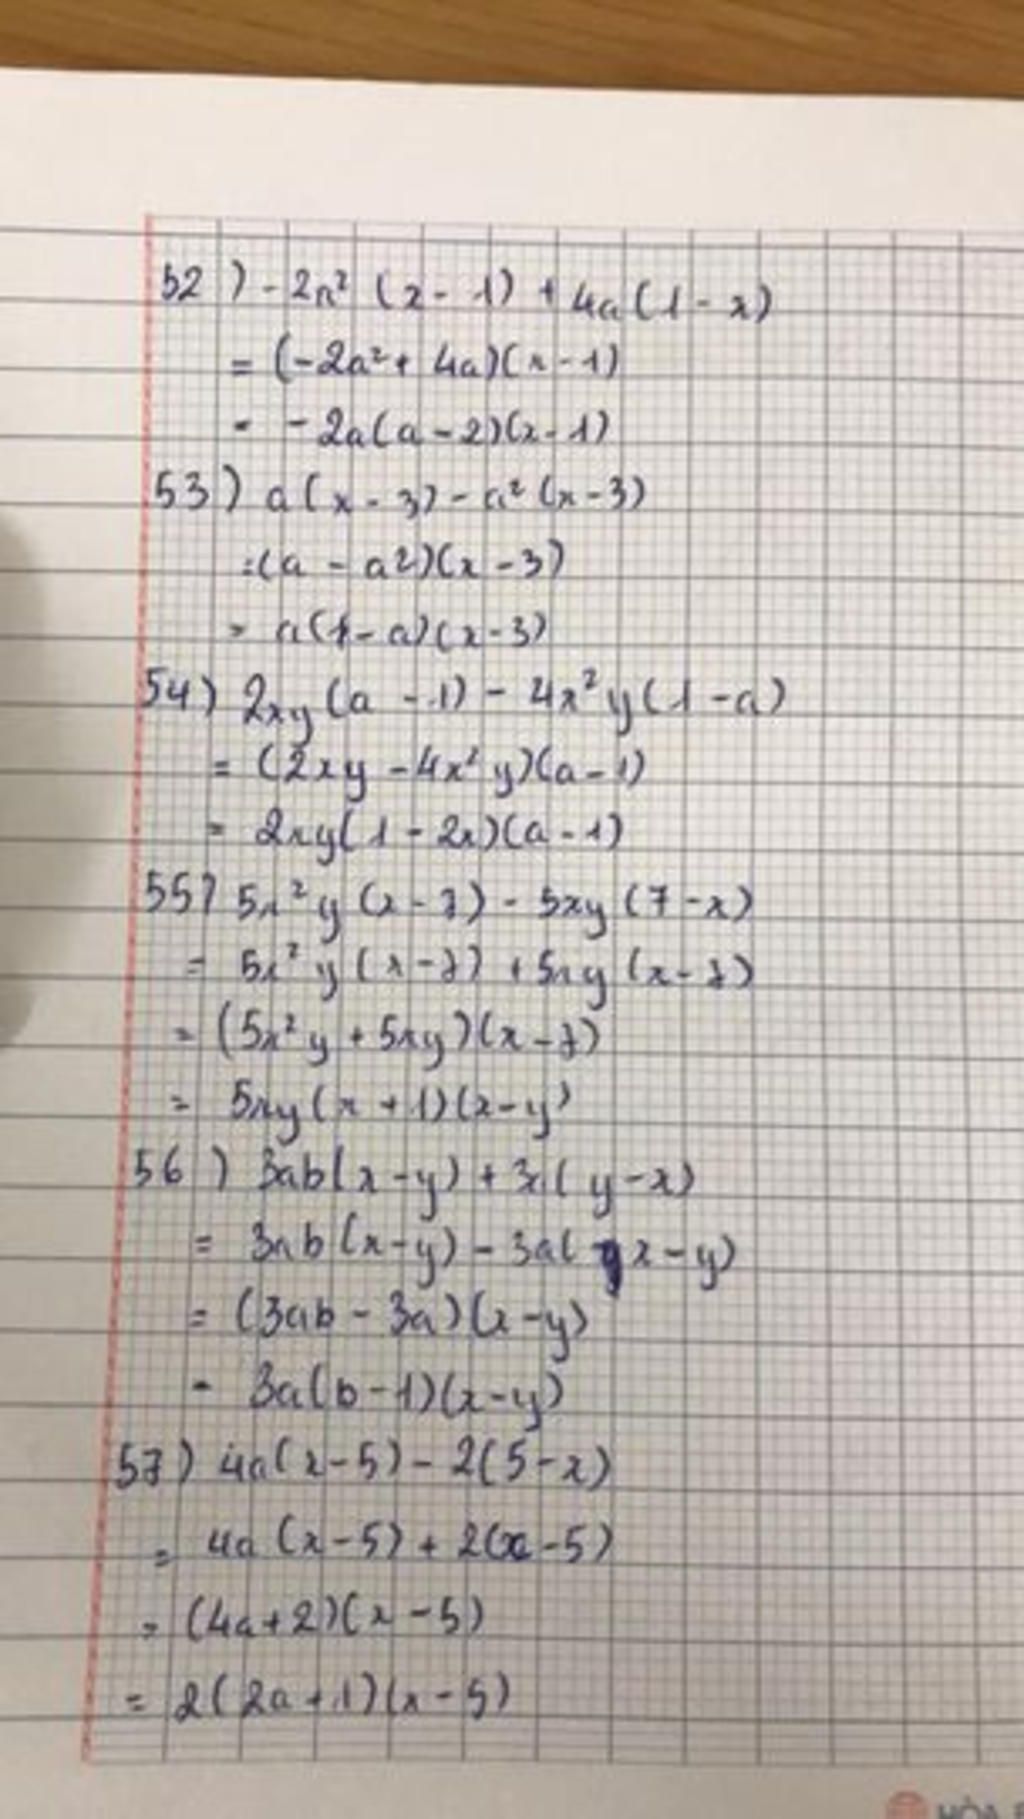 52) - 2a² (x - 1) + 4a (1 - x)
= (-2a² + 4a)(x - 1)
= - 2a(a - 2)(x - 1)
53) a(x - 3) - a² (x - 3)
= (a - a²)(x - 3)
= a(1 - a)(x - 3)
54) 2xy(a - 1) - 4x²y(1 - a)
= (2xy - 4x²y)(a - 1)
= 2xy(1 - 2x)(a - 1)
55) 5x²y (x - 7) - 5xy (7 - x)
= 5x²y (x - 7) + 5xy (x - 7)
= (5x²y + 5xy)(x - 7)
= 5xy (x + 1)(x - y)
56) 3ab(x - y) + 3a( y - x)
= 3ab (x - y) - 3a( x - y)
= (3ab - 3a)(x - y)
= 3a(b - 1)(x - y)
57) 4a(x - 5) - 2(5 - x)
= 4a (x - 5) + 2(x - 5)
= (4a + 2)(x - 5)
= 2(2a + 1)(x - 5)